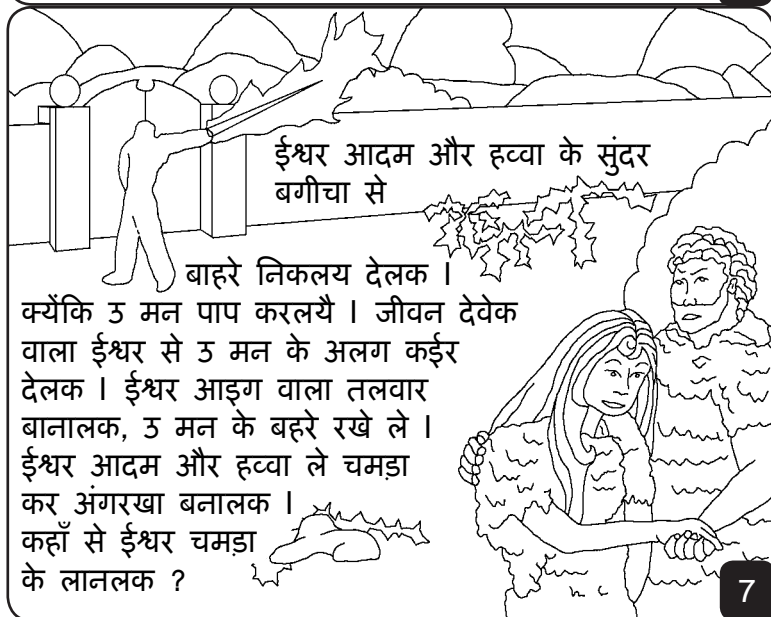 ईश्वर आदम और हव्वा के सुंदर
बगीचा से
बाहरे निकलय देलक ।
क्येंकि उ मन पाप करलयै । जीवन देवेक
वाला ईश्वर से उ मन के अलग कईर
देलक । ईश्वर आइग वाला तलवार
बानालक, उ मन के बहरे रखे ले ।
ईश्वर आदम और हव्वा ले चमड़ा
कर अंगरखा बनालक ।
कहाँ से ईश्वर चमड़ा
के लानलक ?
7